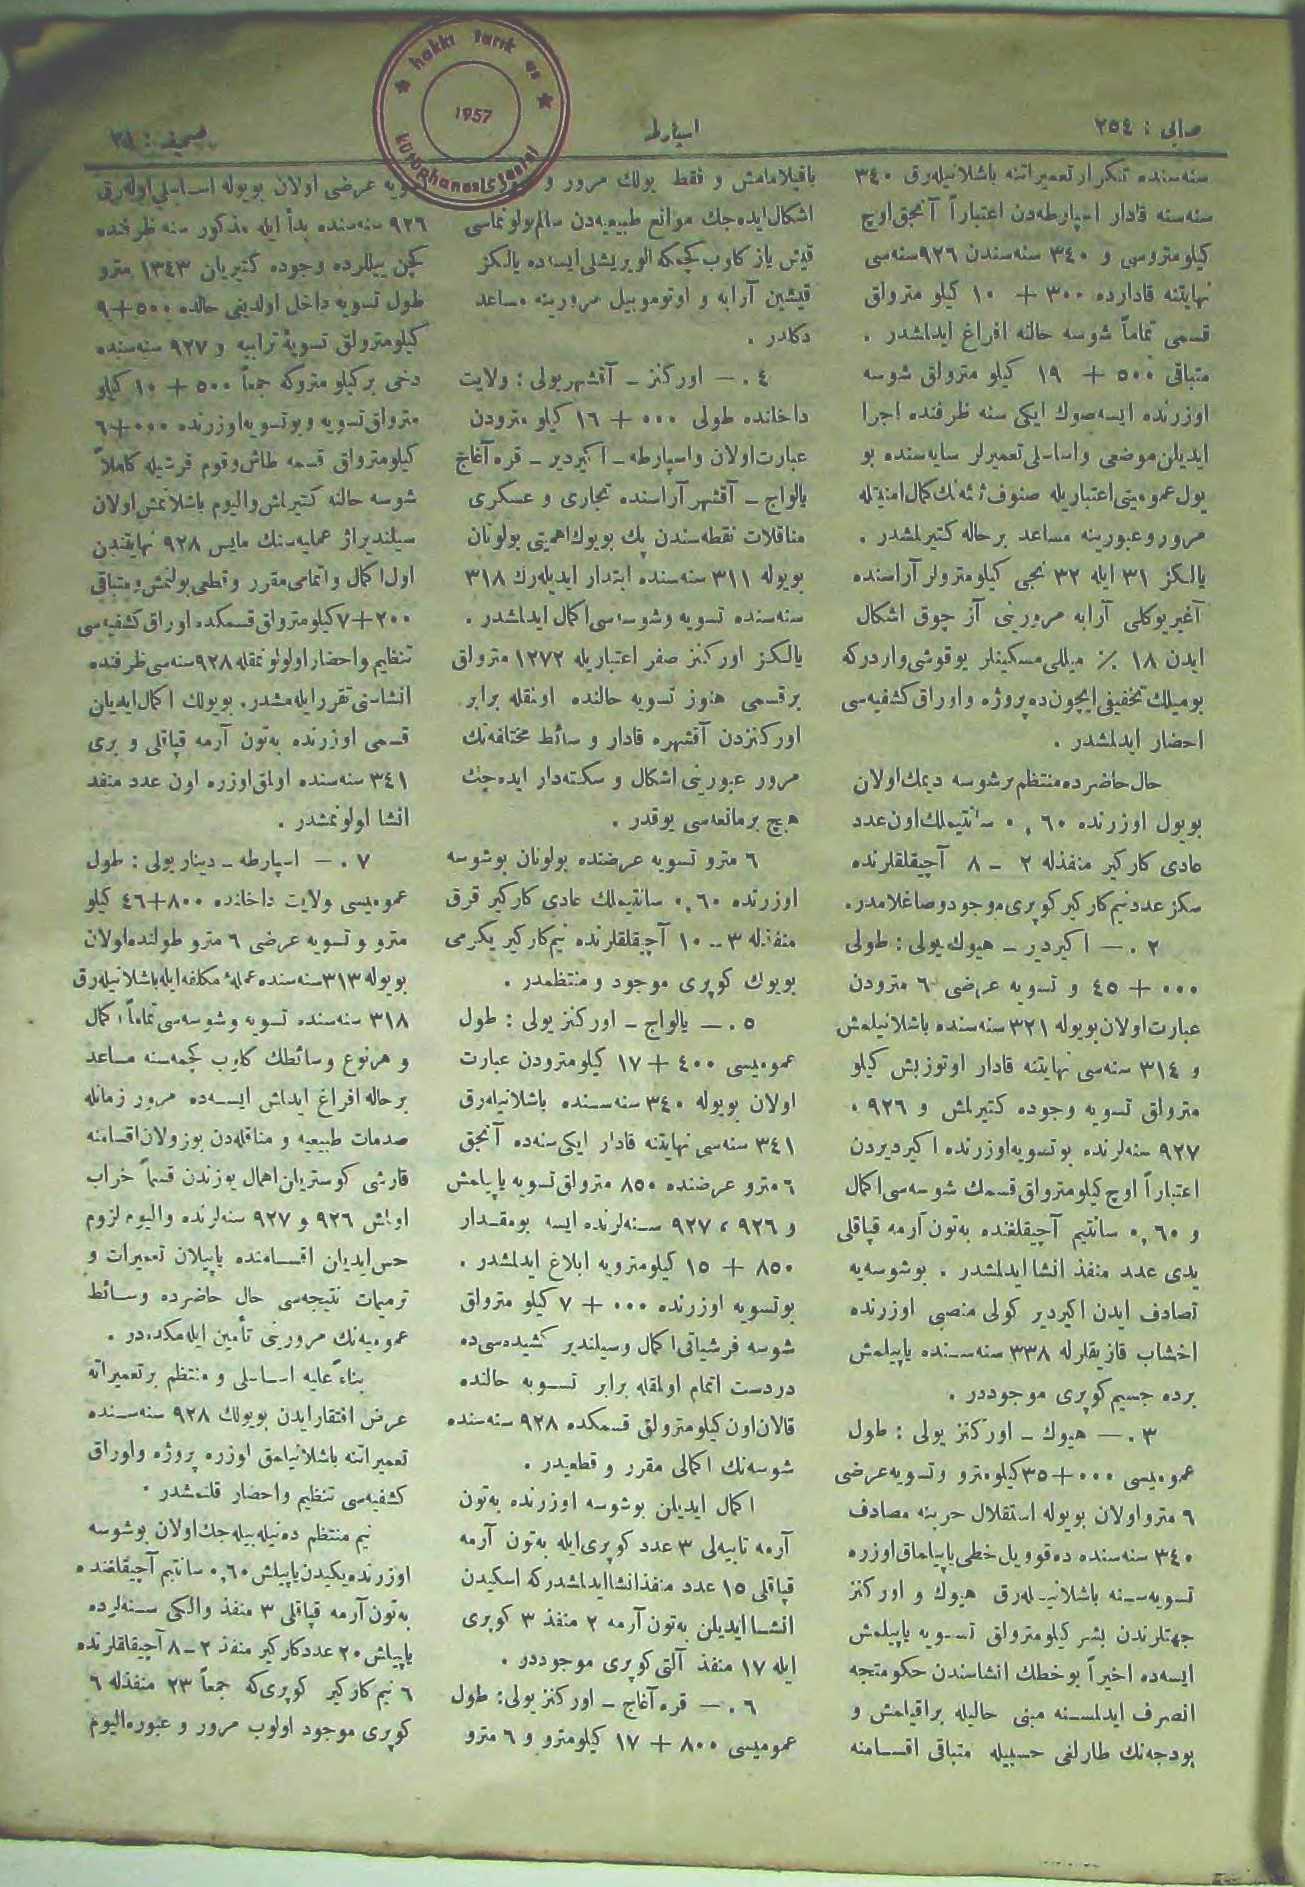 صالى : ٢٥٤
اسپارطه
صحيفه : ٣١
hakkı tarık us
1957
Kütüphanesi
سنه‌سنده تكرار تعميراتنه باشلانيله‌رق ٣٤٠
سنه‌سنه قادار اسپارطه‌دن اعتباراً آنجق اوچ
كيلومتروسى و ٣٤٠ سنه‌سندن ٩٢٦ سنه‌سى
نهايتنه قادارده ٣٠٠ + ١٠ كيلو مترولق
قسمى تماماً شوسه حالنه افراغ ايدلمشدر .
متباقى ٥٠٠ + ١٩ كيلو مترولق شوسه
اوزرنده ايسه صوك ايكى سنه ظرفنده اجرا
ايديلن موضعى واساسلى تعميرلر سايه‌سنده بو
يول عموميتى اعتباريله صنوف ثلثه‌نك كمال امنيتله
مرور وعبورينه مساعد برحاله كتيرلمشدر .
يالكز ٣١ ايله ٣٢ نجى كيلومترولر آراسنده
آغيريوكلى آرابه مرورينى آز چوق اشكال
ايدن ١٨ ٪ ميللى مسكينلر يوقوشى واردركه
بوميلك تخفيفى ايچون ده پروژه واوراق كشفيه‌سى
احضار ايدلمشدر .
حال حاضرده منتظم برشوسه ديمك اولان
بويول اوزرنده ٠,٦٠ سانتيملك اون عدد
عادى كاركير منفذله ٢ ـ ٨ آچيقلقلرنده
سكز عدد نيم كاركير كوپرى موجود وصاغلامدر.
٢ . — اكيردير ـ هيوك يولى : طولى
٠٠٠ + ٤٥ و تسويه عرضى ٦ مترودن
عبارت اولان بويوله ٣٢١ سنه‌سنده باشلانيلمش
و ٣١٤ سنه‌سى نهايتنه قادار اوتوزبش كيلو
مترولق تسويه وجوده كتيرلمش و ٩٢٦ ،
٩٢٧ سنه‌لرنده بوتسويه اوزرنده اكيرديردن
اعتباراً اوچ كيلومترولق قسمك شوسه‌سى اكمال
و ٠,٦٠ سانتيم آچيقلغنده به‌تون آرمه قپاقلى
يدى عدد منفذ انشا ايدلمشدر . بوشوسه‌يه
تصادف ايدن اكيردير كولى منصبى اوزرنده
اخشاب قازيقلرله ٣٣٨ سنه‌سنده ياپيلمش
برده جسيم كوپرى موجوددر .
٣ . — هيوك ـ اوركنز يولى : طول
عموميسى ٠٠٠+٣٥ كيلومترو وتسويه عرضى
٦ مترو اولان بويوله استقلال حربنه مصادف
٣٤٠ سنه‌سنده ده‌قوويل خطى ياپيلماق اوزره
تسويه‌سنه باشلانيله‌رق هيوك و اوركنز
جهتلرندن بشر كيلومترولق تسويه ياپيلمش
ايسه‌ده اخيراً بوخطك انشاسندن حكومتجه
انصراف ايدلمسنه مبنى حاليله براقيلمش و
بودجه‌نك طارلغى حسبيله متباقى اقسامنه
باقيلامامش و فقط يولك مرور و
اشكال ايده‌جك موانع طبيعيه‌دن سالم بولونماسى
قيش ياز كاروب كچمكه الويريشلى ايسه‌ده يالكز
قيشين آرابه و اوتوموبيل مرورينه مساعد
دكلدر .
٤ . — اوركنز ـ آقشهريولى : ولايت
داخلنده طولى ٠٠٠ + ١٦ كيلو مترودن
عبارت اولان واسپارطه ـ اكيردير ـ قره‌آغاج
يالواج ـ آقشهر آراسنده تجارى و عسكرى
مناقلات نقطه‌سندن پك بويوك اهميتى بولونان
بويوله ٣١١ سنه‌سنده ابتدار ايديله‌رك ٣١٨
سنه‌سنده تسويه وشوسه‌سى اكمال ايدلمشدر .
يالكز اوركنز صفر اعتباريله ١٢٧٢ مترولق
برقسمى هنوز تسويه حالنده اونقله برابر
اوركنزدن آقشهره قادار وسائط مختلفه‌نك
مرور عبورينى اشكال و سكته‌دار ايده‌جك
هيچ برمانعه‌سى يوقدر .
٦ مترو تسويه عرضنده بولونان بوشوسه
اوزرنده ٠,٦٠ سانتيملك عادى كاركير قرق
منفذله ٣ ـ ١٠ آچيقلقلرنده نيم كاركير يكرمى
بويوك كوپرى موجود و منتظمدر .
٥ . — يالواج ـ اوركنز يولى : طول
عموميسى ٤٠٠ + ١٧ كيلومترودن عبارت
اولان بويوله ٣٤٠ سنه‌سنده باشلانيله‌رق
٣٤١ سنه‌سى نهايتنه قادار ايكى سنه‌ده آنجق
٦ مترو عرضنده ٨٥٠ مترولق تسويه ياپيلمش
و ٩٢٦ ، ٩٢٧ سنه‌لرنده ايسه بومقدار
٨٥٠ + ١٥ كيلومترويه ابلاغ ايدلمشدر .
بوتسويه اوزرنده ٠٠٠ + ٧ كيلو مترولق
شوسه فرشياتى اكمال وسيلندير كشيده‌سى ده
دردست اتمام اولمقله برابر تسويه حالنده
قالان اون كيلومترولق قسمكده ٩٢٨ سنه‌سنده
شوسه‌نك اكمالى مقرر و قطعيدر .
اكمال ايديلن بوشوسه اوزرنده به‌تون
آرمه تابيه‌لى ٣ عدد كوپرى ايله به‌تون آرمه
قپاقلى ١٥ عدد منفذ انشا ايدلمشدركه اسكيدن
انشا ايديلن به‌تون آرمه ٢ منفذ ٣ كوپرى
ايله ١٧ منفذ آلتى كوپرى موجوددر .
٦ . — قره‌آغاج ـ اوركنز يولى: طول
عموميسى ٨٠٠ + ١٧ كيلومترو و ٦ مترو
تسويه عرضى اولان بويوله اساسلى اوله‌رق
٩٢٦ سنه‌سنده بدأ ايله مذكور سنه ظرفنده
كچن ييللرده وجوده كتيريلن ١٣٤٣ مترو
طول تسويه داخل اولديغى حالده ٥٠٠+٩
كيلومترولق تسويۀ ترابيه و ٩٢٧ سنه‌سنده
دخى بر كيلو متروكه جمعاً ٥٠٠ + ١٠ كيلو
مترولق تسويه وبوتسويه اوزرنده ٠٠٠+٦
كيلومترولق قسمه طاش وقوم فرشيله كاملاً
شوسه حالنه كتيرلمش واليوم باشلانمش اولان
سيلنديراژ عمليه‌سنك مايس ٩٢٨ نهايتندن
اول اكمال واتمامى مقرر وقطعى بولنمش ومتباقى
٢٠٠+٧ كيلومترولق قسمكده اوراق كشفيه‌سى
تنظيم واحضار اولونمقله ٩٢٨ سنه‌سى ظرفنده
انشاسى تقرر ايله‌مشدر. بويولك اكمال ايديلن
قسمى اوزرنده به‌تون آرمه قپاقلى و برى
٣٤١ سنه‌سنده اولمق اوزره اون عدد منفذ
انشا اولونمشدر .
٧ . — اسپارطه ـ دينار يولى : طول
عموميسى ولايت داخلنده ٨٠٠+٤٦ كيلو
مترو و تسويه عرضى ٦ مترو طولنده اولان
بويوله ٣١٣ سنه‌سنده عملۀ مكلفه ايله باشلانيله‌رق
٣١٨ سنه‌سنده تسويه وشوسه‌سى تماماً اكمال
و هرنوع وسائطك كلوب كچمه‌سنه مساعد
برحاله افراغ ايدلمش ايسه‌ده مرور زمانله
صدمات طبيعيه و مناقله‌دن بوزولان اقسامنه
قارشى كوستريلن اهمال يوزندن قسماً خراب
اولمش ٩٢٦ و ٩٢٧ سنه‌لرنده واليوم لزوم
حس ايديلن اقسامنده ياپيلان تعميرات و
ترميمات نتيجه‌سى حال حاضرده وسائط
عموميه‌نك مرورينى تأمين ايله‌مكده‌در .
بناءً عليه اساسلى و منتظم برتعميراته
عرض افتقار ايدن بويولك ٩٢٨ سنه‌سنده
تعميراتنه باشلانيلمق اوزره پروژه واوراق
كشفيه‌سى تنظيم واحضار قلنمشدر .
نيم منتظم ده‌نيله‌بيله‌جك اولان بوشوسه
اوزرنده يكيدن ياپيلمش ٠,٦٠ سانتيم آچيقلغنده
به‌تون آرمه قپاقلى ٣ منفذ والكى سنه‌لرده
ياپيلمش ٢٠ عدد كاركير منفذ ٢ـ٨ آچيقلقلرنده
٦ نيم كاركير كوپرى كه جمعاً ٢٣ منفذله ٦
كوپرى موجود اولوب مرور و عبوره اليوم